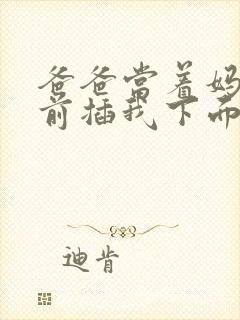 爸爸当着妈
前插我下面
迪肯